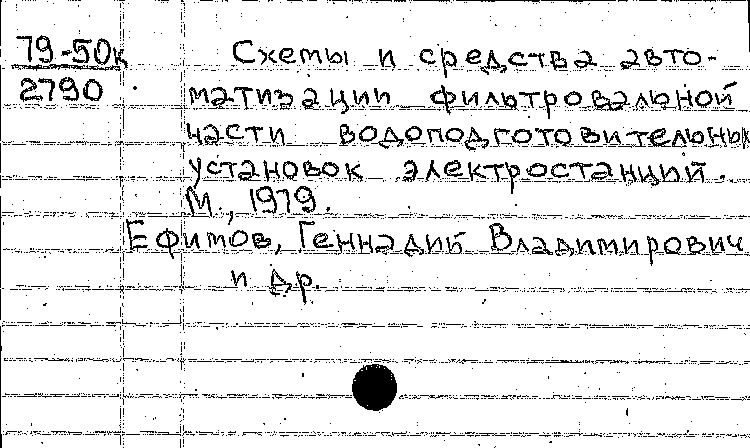 79-50к
2790
Схемы и средства авто-
матизации фильтровальной
части водоподготовительных
установок электростанций.
М., 1979.
Ефимов, Геннадий Владимирович
и др.